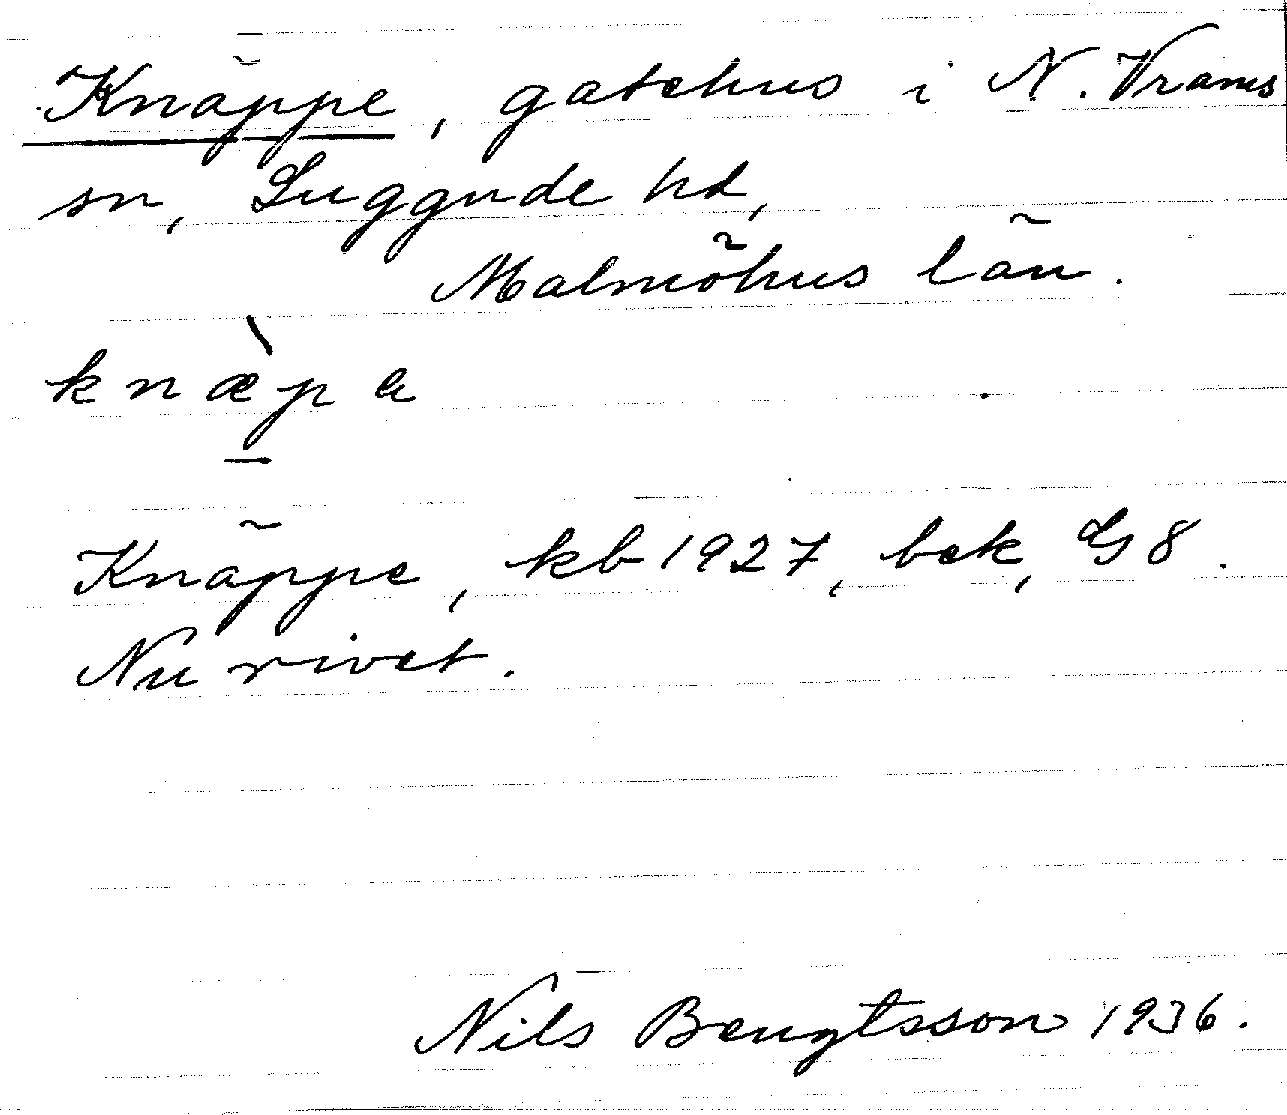 Knäppe, gatehus i N. Vrams
sn, Luggude hd,
Malmöhus län.
knæ̀p̱a
Knäppe, kb 1927, bek, G8.
Nu rivet.
Nils Bengtsson 1936.